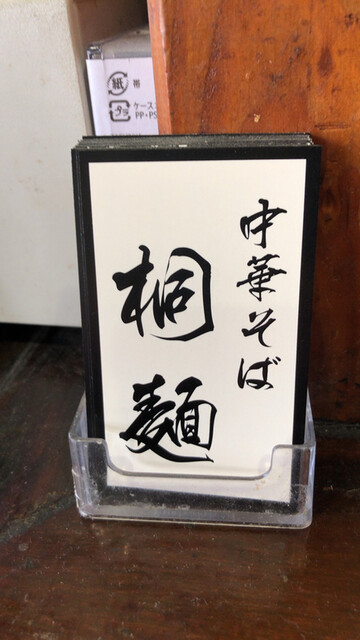 中華そば
桐麺
紙
帯
プラ
ケース
PP・PS